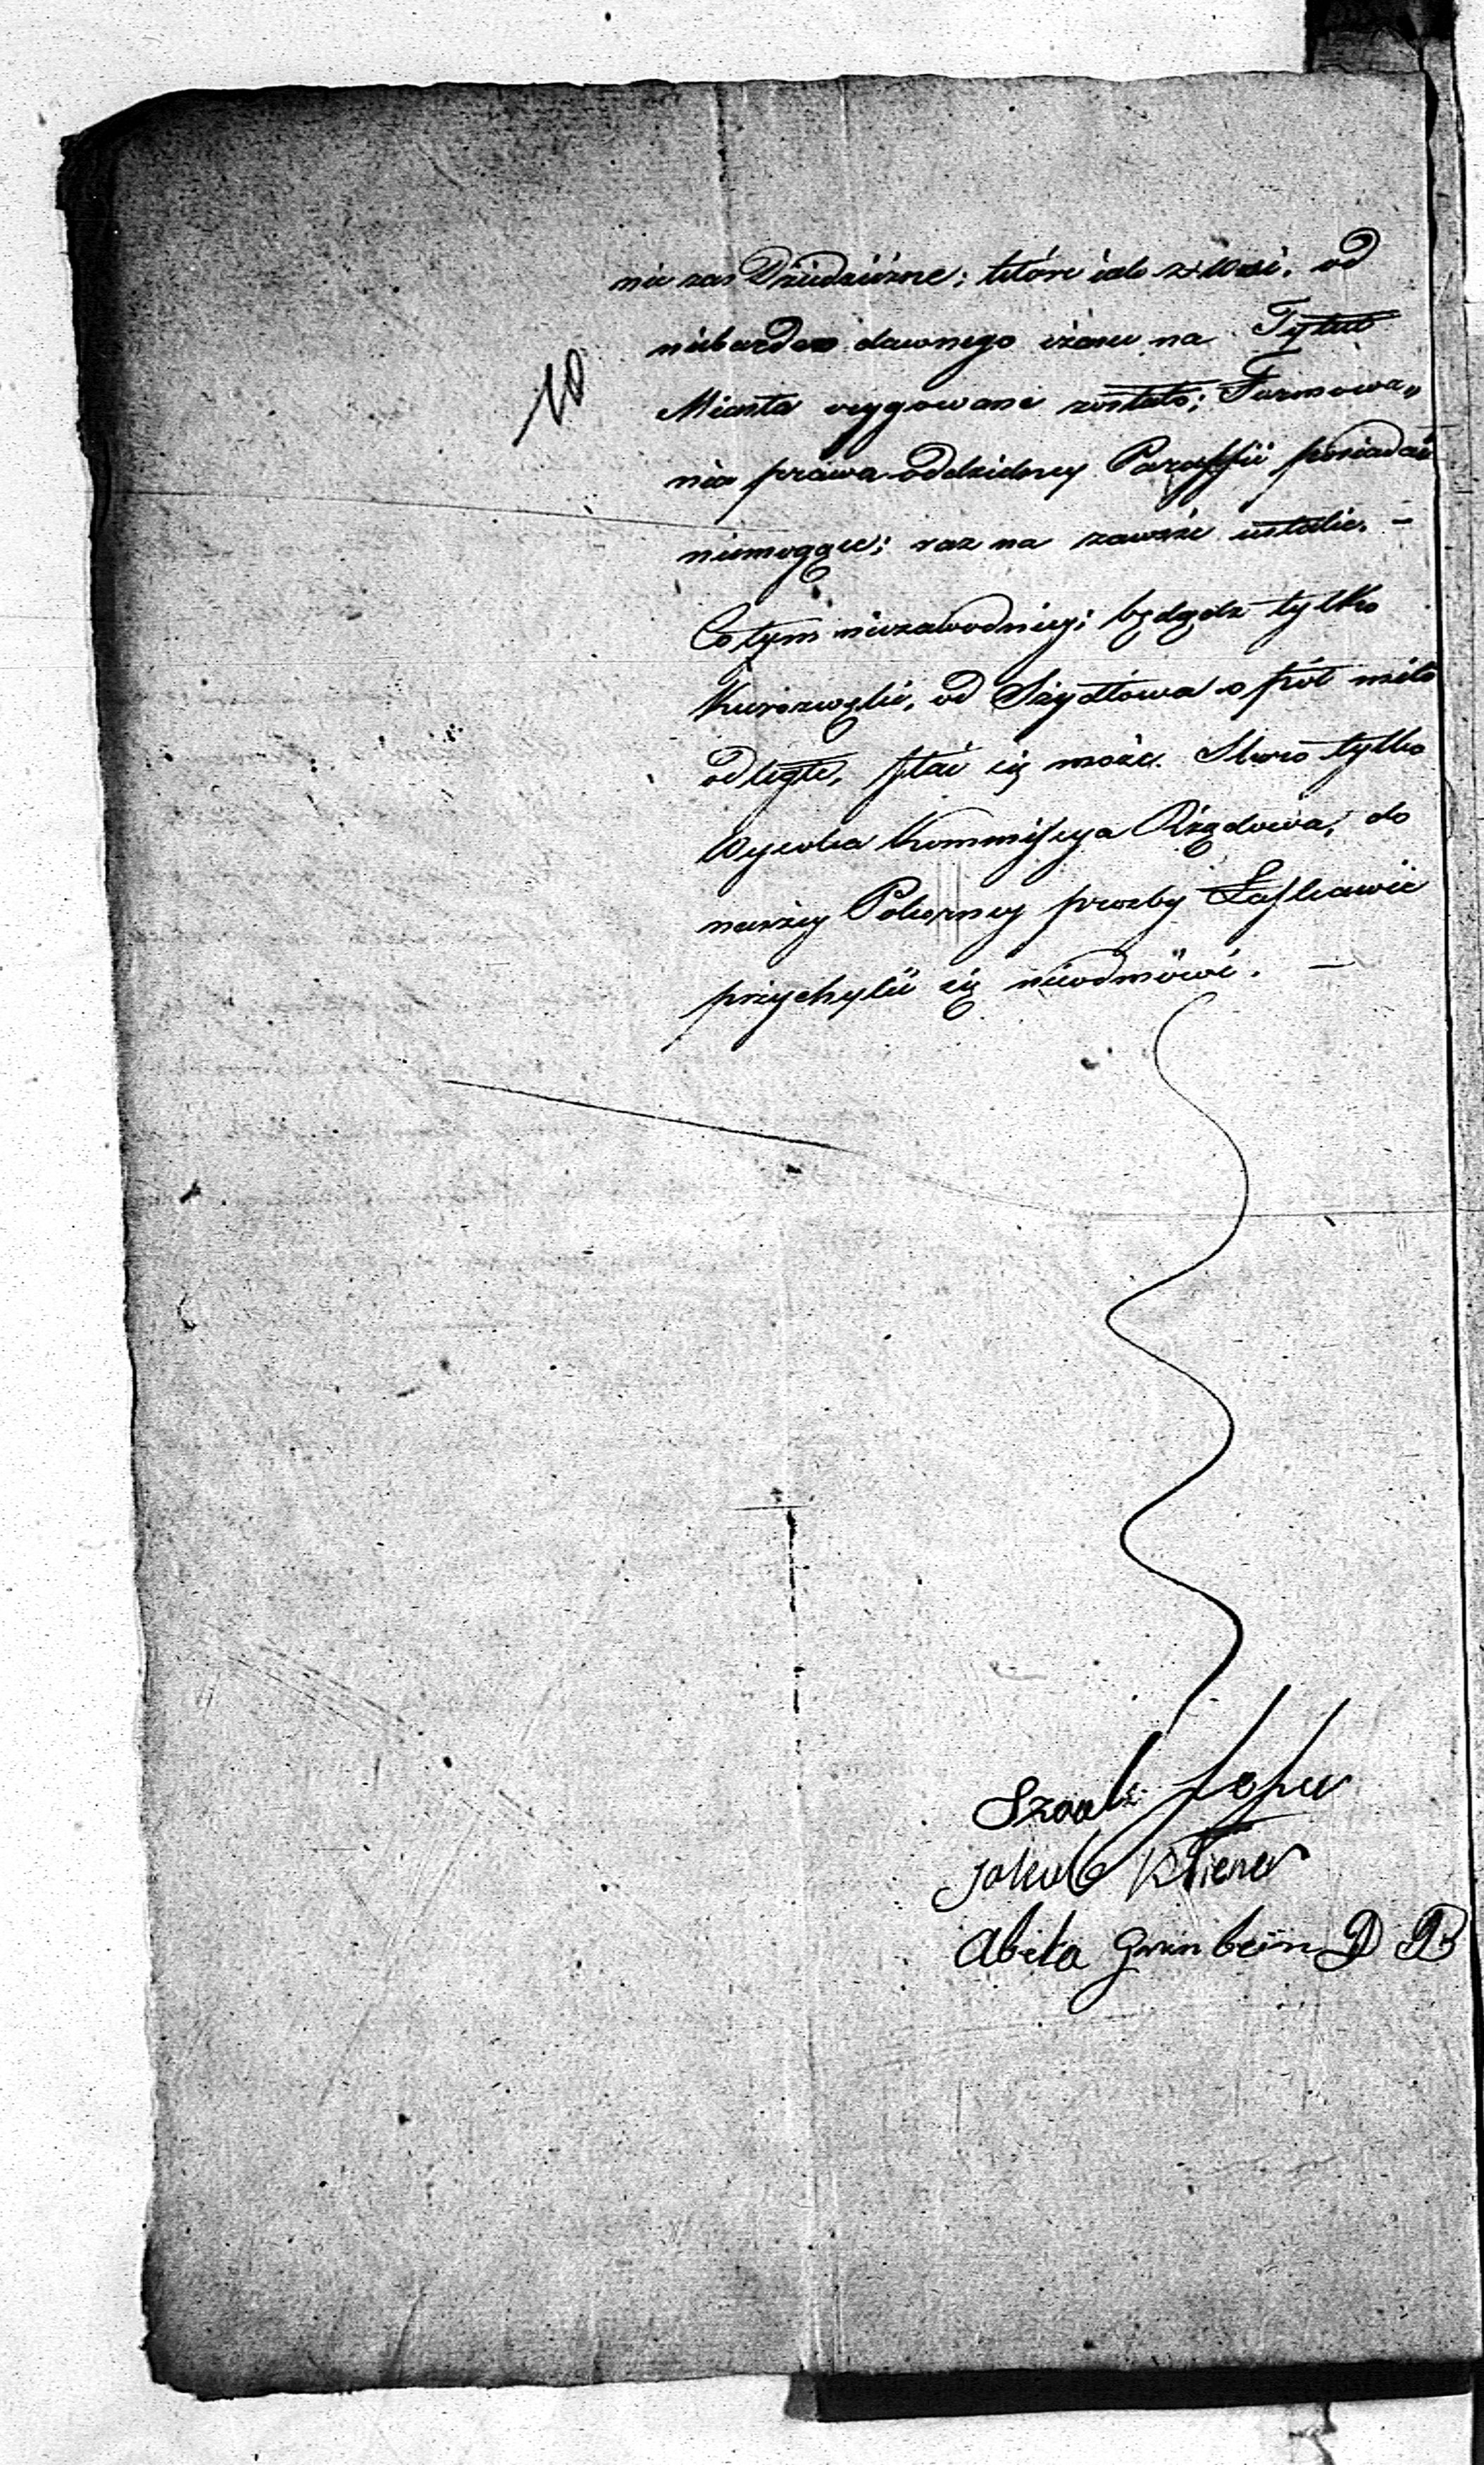 nie zas Dziedziczne; które jako z Wsi, od
niebardzo dawnego czasu na Tytuł
10
Miasta erygowane zostało; Formowa„
nia prawa oddzielney Paraffii posiadać
niemogące; raz na zawsze ustalić. –
Co tym niezawodniey; bydądz tylko
Kurozwęki, od Szydłowa o puł mila
odległe, stać się może. Skoro tylko
Wysoka Kommissya Rządowa, do
naszey Pokorney prozby Łaskawie
przychylić się nieodmówi. —
Szaul
Jakub Kliener
Abela Grinbein D B